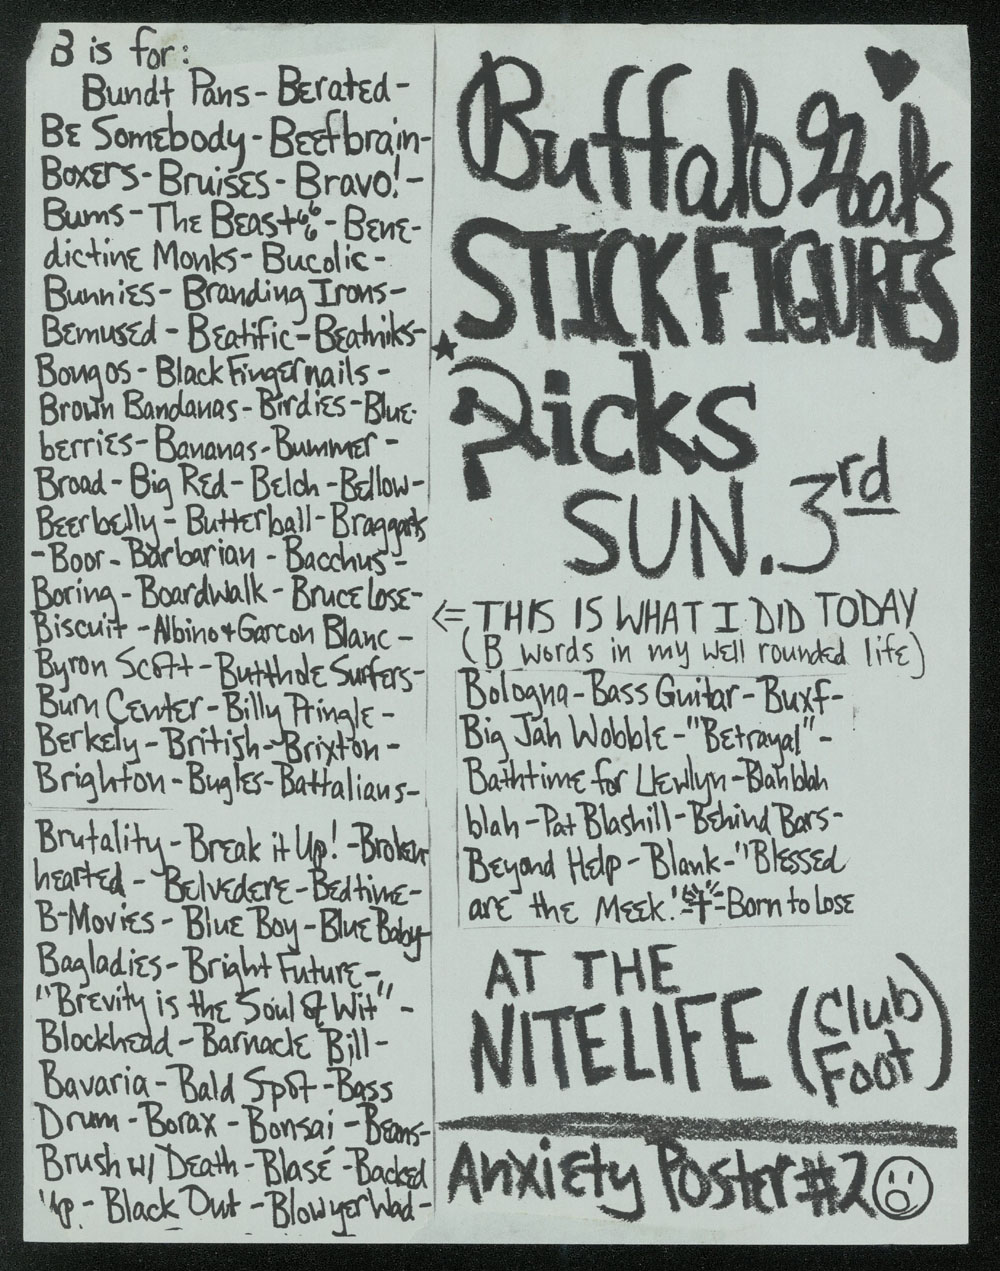 B is for:
Bundt Pans - Berated -
Be Somebody - Beefbrain -
Boxers - Bruises - Bravo! -
Bums - The Beast 666 - Bene-
dictine Monks - Bucolic -
Bunnies - Branding Irons -
Bemused - Beatific - Beatniks -
Bongos - Black Fingernails -
Brown Bandanas - Birdies - Blue-
berries - Bananas - Bummer -
Broad - Big Red - Belch - Bellow -
Beerbelly - Butterball - Braggarts
- Boor - Barbarian - Bacchus -
Boring - Boardwalk - Bruce Lose -
Biscuit - Albino & Garcon Blanc -
Byron Scott - Butthole Surfers -
Burn Center - Billy Pringle -
Berkely - British - Brixton -
Brighton - Bugles - Battalians -
Brutality - Break it Up! - Broken
hearted - Belvedere - Bedtime -
B-Movies - Blue Boy - Blue Baby
Bagladies - Bright Future -
"Brevity is the Soul of Wit" -
Blockhedd - Barnacle Bill -
Bavaria - Bald Spot - Bass
Drum - Borax - Bonsai - Beans -
Brush w/ Death - Blasé - Backed
Up - Black Out - Blow yer Wad -
Buffalo Gals
STICK FIGURES
Dicks
SUN. 3rd
<= THIS IS WHAT I DID TODAY
(B words in my well rounded life)
Bologna - Bass Guitar - Buxf -
Big Jah Wobble - "Betrayal" -
Bathtime for Llewlyn - Blah blah
blah - Pat Blashill - Behind Bars -
Beyond Help - Blank - "Blessed
are the Meek." - Born to Lose
AT THE
NITELIFE (Club
Foot)
Anxiety Poster #2